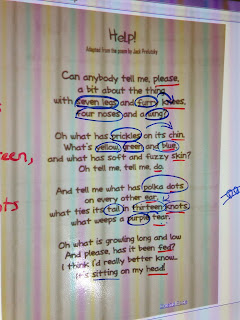 Help!
Adapted from the poem by Jack Prelutsky
Can anybody tell me, please,
a bit about the thing
with seven legs and furry knees,
four noses and a wing?
Oh what has prickles on its chin.
What's yellow, green and blue,
and what has soft and fuzzy skin?
Oh tell me, tell me, do.
And tell me what has polka dots
on every other ear,
what ties its tail in thirteen knots,
what weeps a purple tear.
Oh what is growling long and low
And please, has it been fed?
I think I'd really better know...
It's sitting on my head!